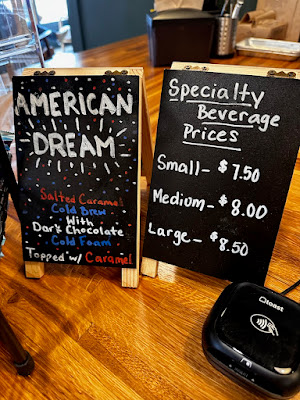 AMERICAN
DREAM
Salted Caramel
Cold Brew
With
Dark Chocolate
Cold Foam
Topped w/ Caramel
Specialty
Beverage
Prices
Small - $7.50
Medium - $8.00
Large - $8.50
toast